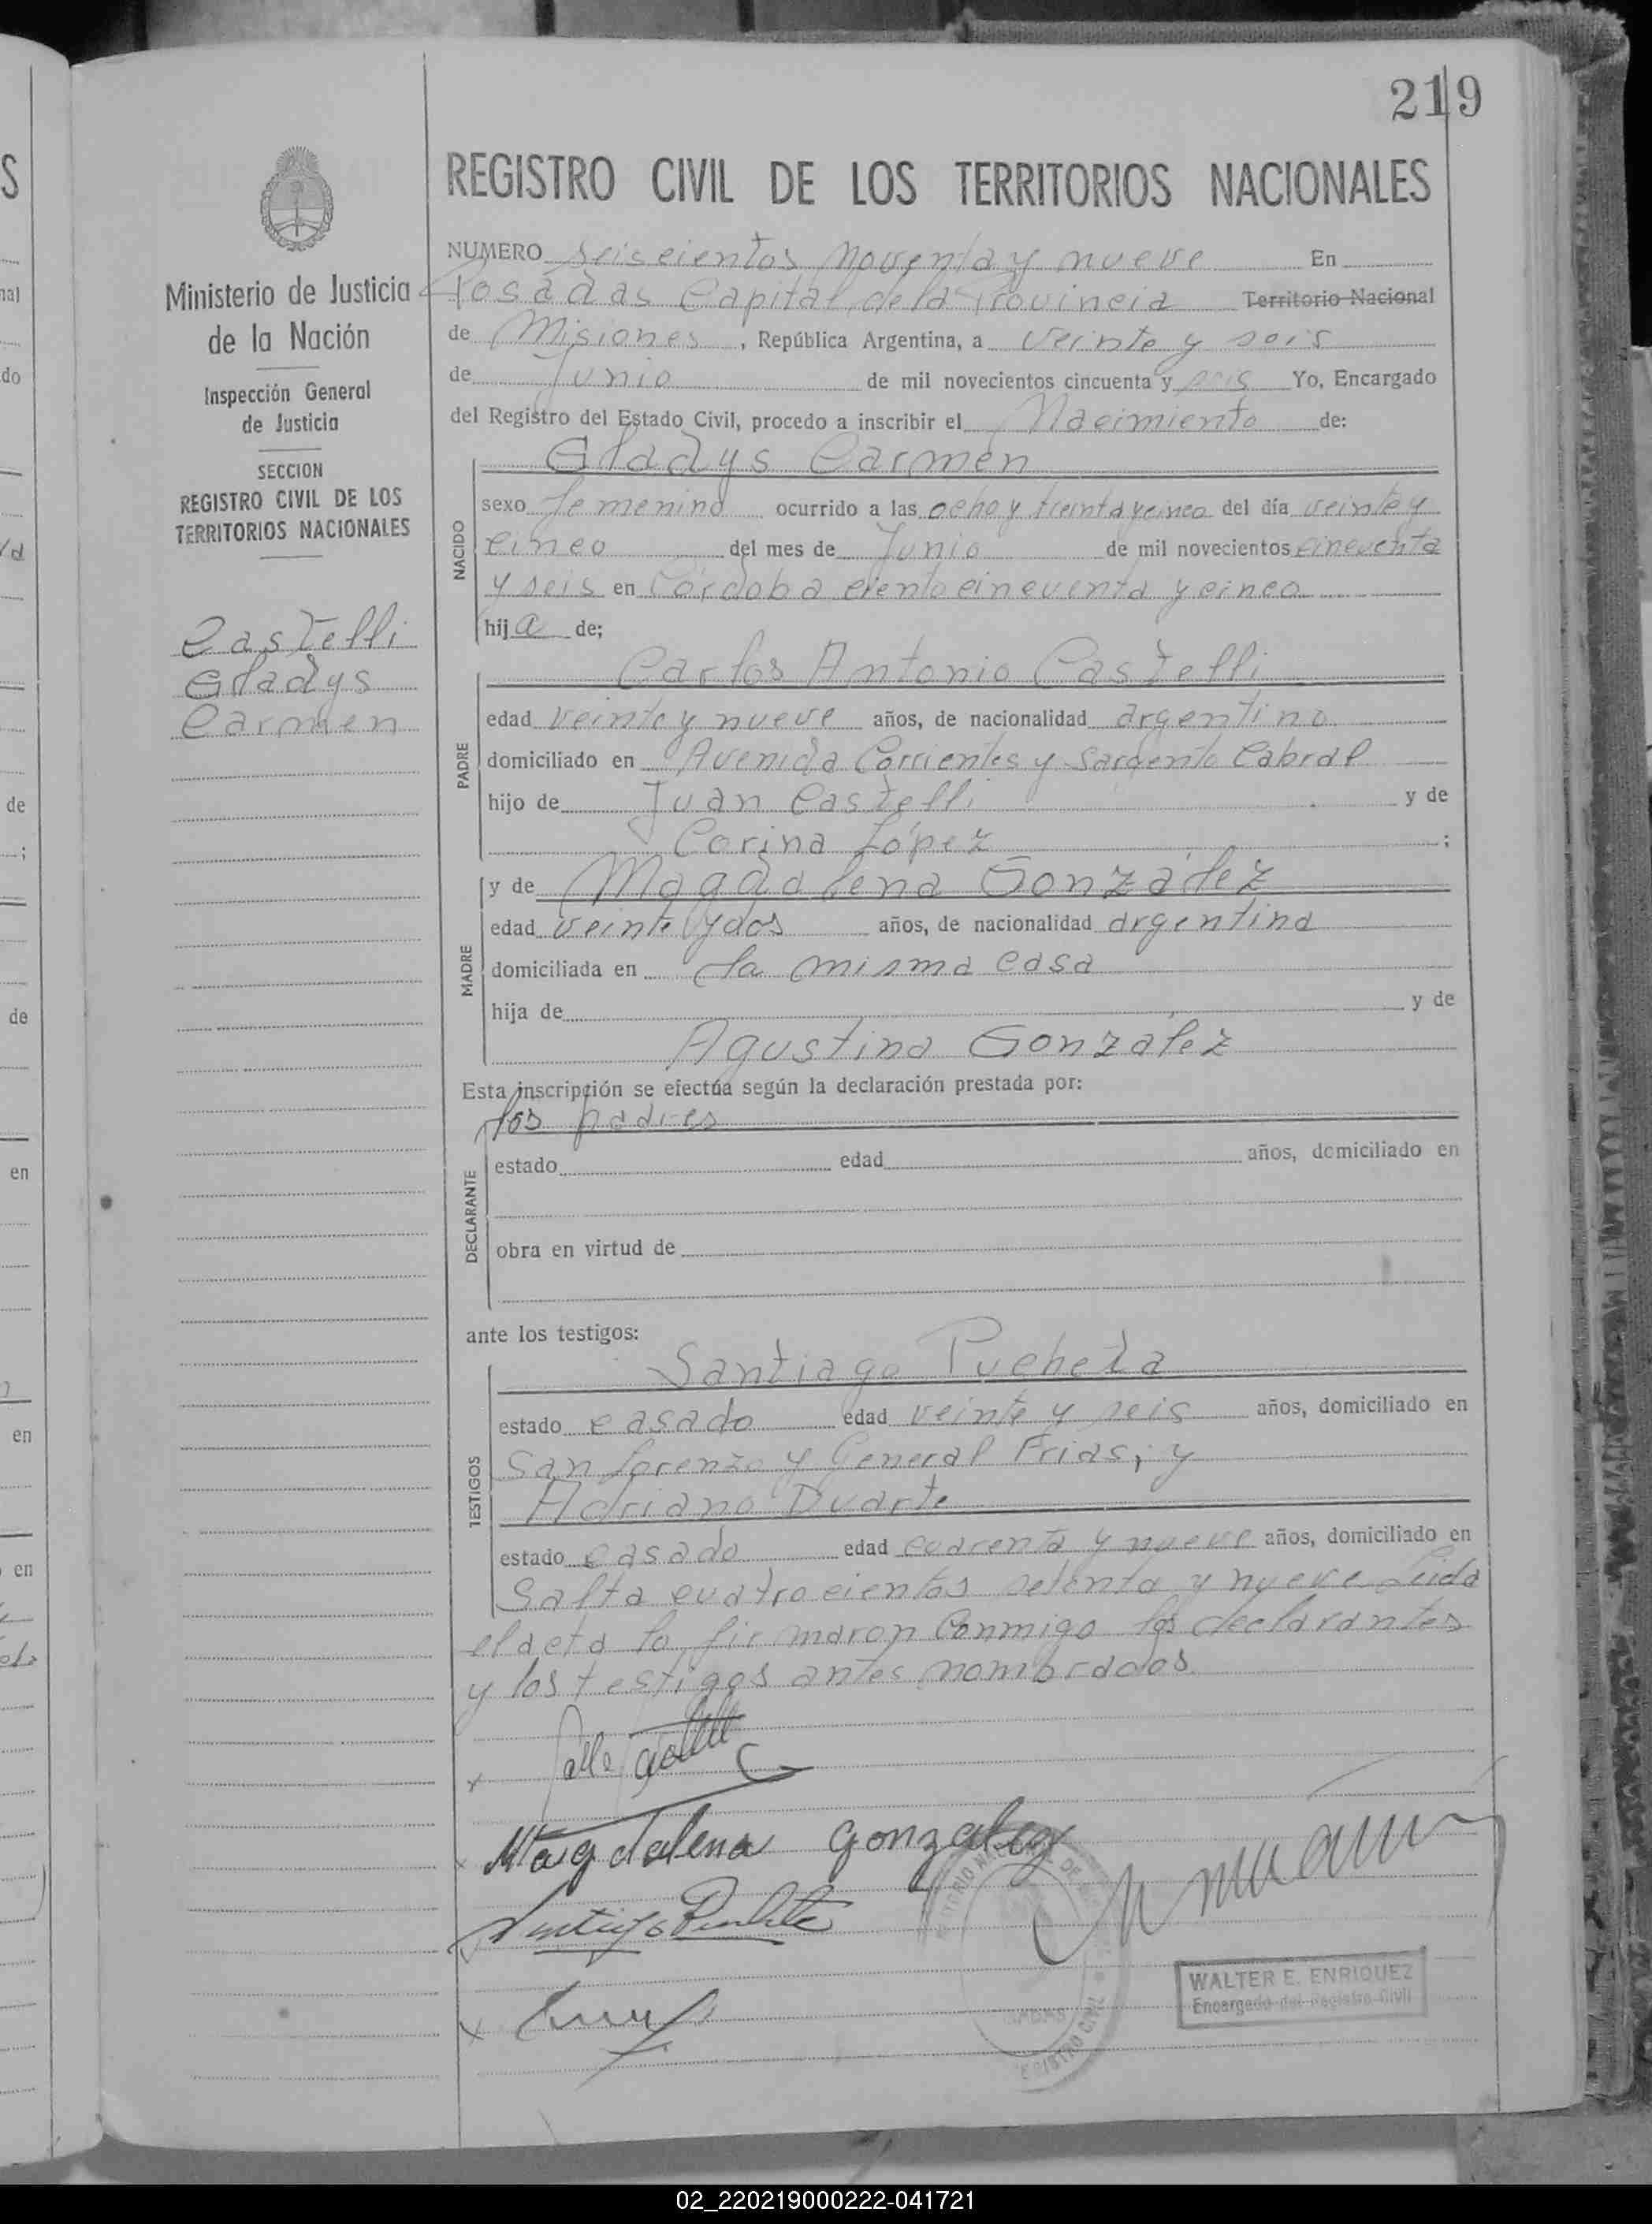 219
REGISTRO CIVIL DE LOS TERRITORIOS NACIONALES
Ministerio de Justicia
de la Nación
Inspección General
de Justicia
SECCION
REGISTRO CIVIL DE LOS
TERRITORIOS NACIONALES
Castelli
Gladys
Carmen
NUMERO seiscientos noventa y nueve En
Posadas Capital de la Provincia Territorio Nacional
de Misiones, República Argentina, a veinte y seis
de Junio de mil novecientos cincuenta y seis Yo, Encargado
del Registro del Estado Civil, procedo a inscribir el Nacimiento de:
Gladys Carmen
NACIDO
sexo femenino ocurrido a las ocho y treinta y cinco del día veinte y
cinco del mes de Junio de mil novecientos cincuenta
y seis en Córdoba ciento cincuenta y cinco
hija de;
Carlos Antonio Castelli
PADRE
edad veinte y nueve años, de nacionalidad argentino
domiciliado en Avenida Corrientes y Sargento Cabral
hijo de Juan Castelli y de
Corina López ;
y de Magdalena González
MADRE
edad veinte y dos años, de nacionalidad argentina
domiciliada en la misma casa
hija de y de
Agustina González
Esta inscripción se efectúa según la declaración prestada por:
los padres
DECLARANTE
estado edad años, domiciliado en
obra en virtud de
ante los testigos:
Santiago Pucheta
TESTIGOS
estado casado edad veinte y seis años, domiciliado en
San Lorenzo y General Frias; y
Adriano Duarte
estado casado edad cuarenta y nueve años, domiciliado en
Salta cuatrocientos setenta y nueve Leida
el acta la firmaron conmigo los declarantes
y los testigos antes nombrados.
Magdalena Gonzalez
Santiago Pucheta
WALTER E. ENRIQUEZ
Encargado del Registro Civil
REGISTRO CIVIL
02_220219000222-041721